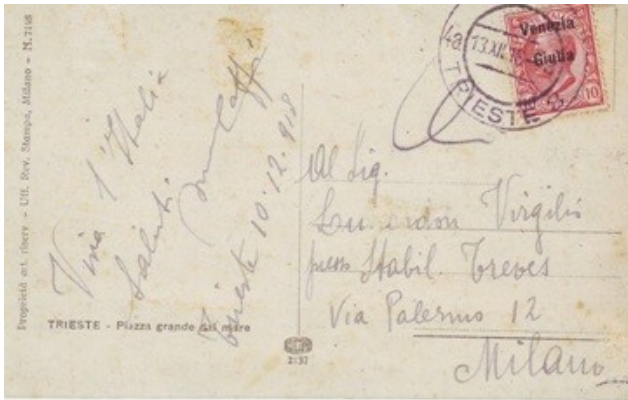 Proprietà art. riserv. - Uff. Rev. Stampa, Milano - N. 7198
Viva l'Italia
Saluti
Trieste 10.12.918
TRIESTE - Piazza grande dal mare
2137
4a TRIESTE
13.XII.18
Venezia
Giulia
10
Al Sig.
Virgilio
presso Stabil. Treves
Via Palermo 12
Milano